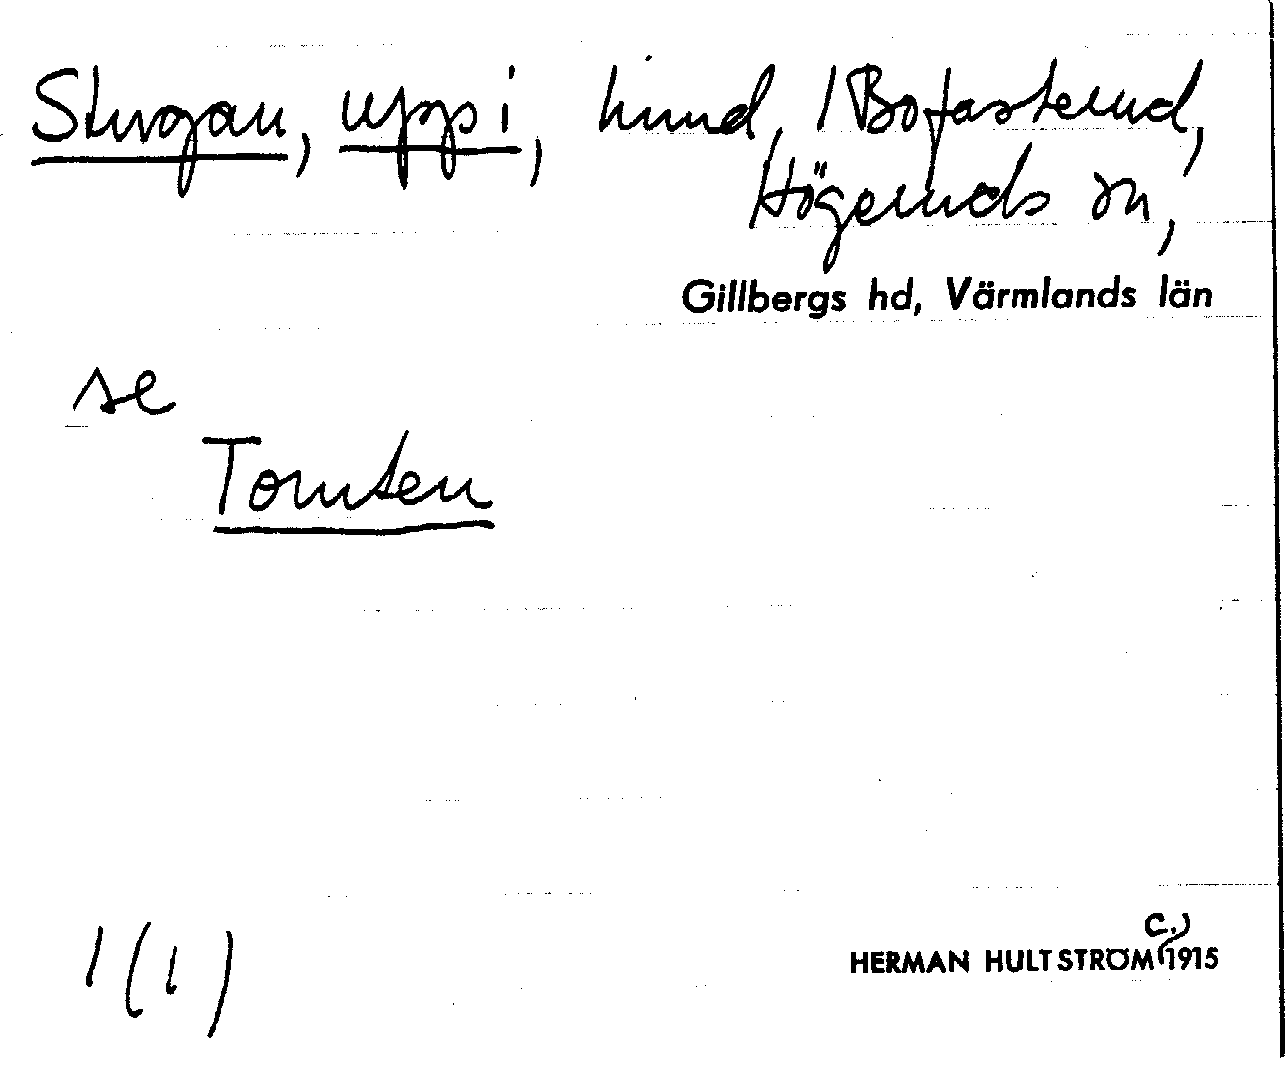 Stugan, uppi, hmd, 1 Bofasterud,
Högeruds sn,
Gillbergs hd, Värmlands län
se
Tomten
1(1)
c.
HERMAN HULTSTRÖM 1915